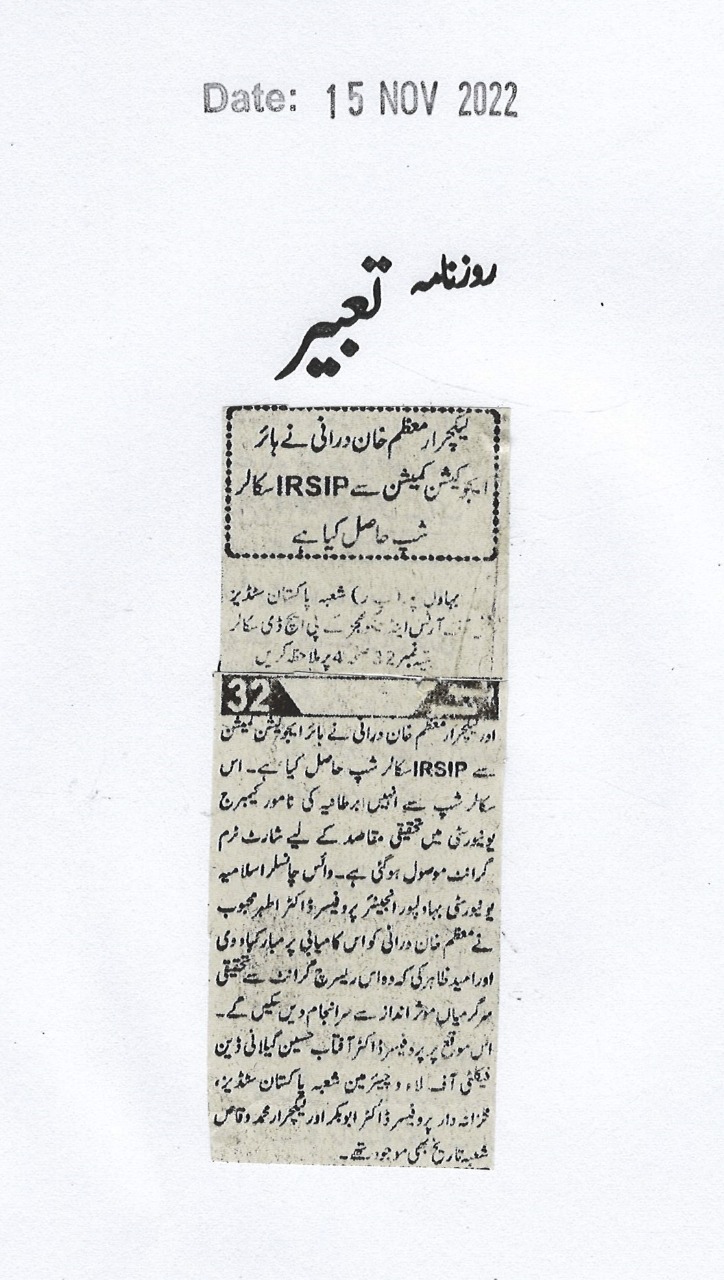 Date: 15 NOV 2022
روزنامہ تعبیر
لیکچرار معظم خان درانی نے ہائر
ایجوکیشن کمیشن سے IRSIP سکالر
شپ حاصل کیا ہے
بہاول پور (پ ر) شعبہ پاکستان سٹڈیز
آف آرٹس اینڈ کے پی ایچ ڈی سکالر
بقیہ نمبر 32 صفحہ 4 پر ملاحظہ کریں
32 بقیہ
اور لیکچرار معظم خان درانی نے ہائر ایجوکیشن کمیشن
سے IRSIP سکالر شپ حاصل کیا ہے۔ اس
سکالر شپ سے انہیں برطانیہ کی نامور کیمبرج
یونیورسٹی میں تحقیقی مقاصد کے لیے شارٹ ٹرم
گرانٹ موصول ہوگئی ہے۔ وائس چانسلر اسلامیہ
یونیورسٹی بہاولپور انجینئر پروفیسر ڈاکٹر اطہر محبوب
نے معظم خان درانی کو اس کامیابی پر مبارکباد دی
اور امید ظاہر کی کہ وہ اس ریسرچ گرانٹ سے تحقیقی
سرگرمیاں مؤثر انداز سے سرانجام دیں سکیں گے۔
اس موقع پر پروفیسر ڈاکٹر آفتاب حسین گیلانی ڈین
فیکلٹی آف لاء و چیئرمین شعبہ پاکستان سٹڈیز،
خزانہ دار پروفیسر ڈاکٹر ابوبکر اور لیکچرار محمد وقاص
شعبہ تاریخ بھی موجود تھے۔